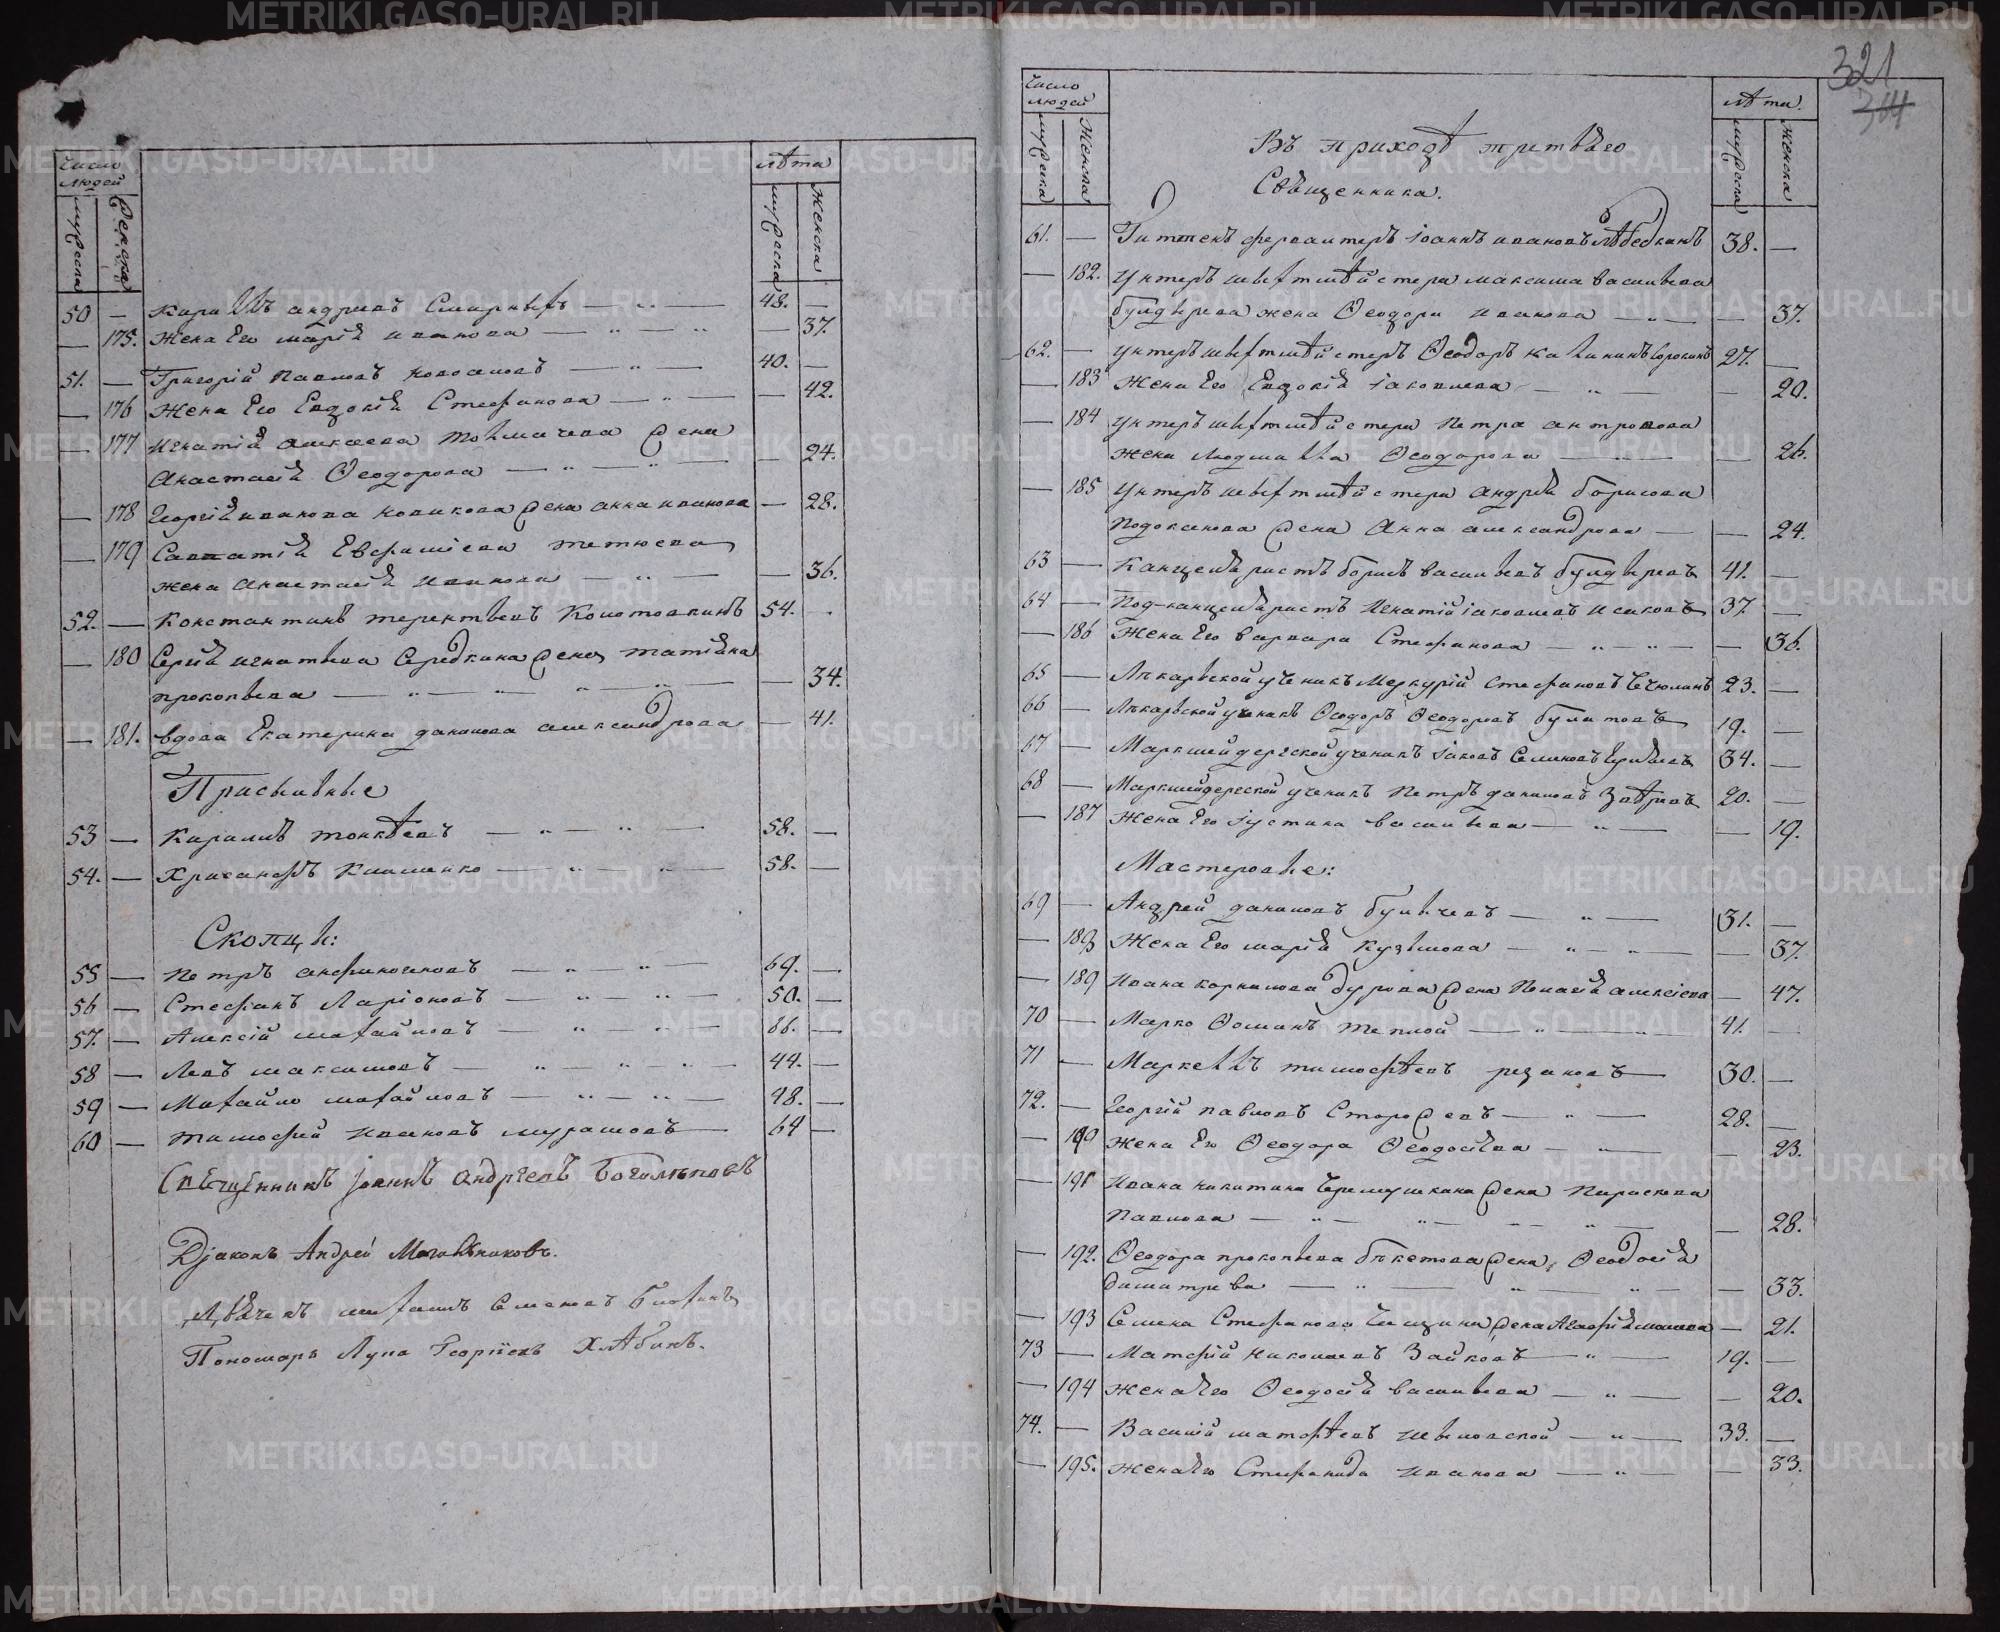 Число людей
мужеска
женска
лѣта
мужеска
женска
50 — Кириллъ андреевъ Смирныхъ — 48. —
— 175. жена Его марія иванова — — 37.
51. — Григорій Павловъ Новоселовъ — 40. —
— 176 жена Его Евдокія Стефанова — — 42.
— 177 игнатія алексеева Толмачева жена
Анастасія Ѳеодорова — — 24.
— 178 Георгія иванова новикова жена анна иванова — 28.
— 179 Савватія Евфимiева тетюева
жена анастасія иванова — — 36.
52. — Константинъ терентьевъ 54. —
— 180 Сергія игнатьева Середкина жена татіяна
прокопьева — — 34.
— 181. вдова Екатерина данилова александрова — 41.
Присыльные
53 — Кирилъ — 58. —
54. — Хрисанфъ Клименко — 58. —
Скопцы:
55 — Петръ анфиногеновъ — 69. —
56 — Стефанъ Ларіоновъ — 50. —
57. — Алексій михайловъ — 66. —
58 — Левъ максимовъ — 44. —
59 — Михайло михайловъ — 48. —
60 — тимофей ивановъ мурашовъ — 64 —
Священникъ іоаннъ андреевъ Боголѣповъ
Діаконъ Андрей
Пономарь Лупа Георгіевъ Хлѣбинъ.
321
314
Число людей
мужеска
женска
лѣта.
мужеска
женска
Въ приходѣ третьяго
Священника.
61. — Гиттенъ іоаннъ ивановъ лѣбедкинъ 38. —
— 182. унтеръ шихтмѣйстера максима васильева
булдырева жена Ѳеодора иванова — — 37.
62. — унтеръ шихтмѣйстеръ Ѳеодоръ калининъ Сорокинъ 27. —
— 183 жена Его Евдокія іаковлева — — 20.
— 184 унтеръ шихтмѣйстера Петра антропова
жена людмилла Ѳеодорова — — 26.
— 185 унтеръ шихтмѣйстера андрея борисова
Подоксенова жена Анна александрова — — 24.
63 — Канцеляристъ борисъ васильевъ булдыревъ 41. —
64 — Под-канцеляристъ Игнатій іаковлевъ исаковъ 37. —
— 186 жена Его варвара Стефанова — — 36.
65 — Лѣкарьской ученикъ Меркурій Стефановъ 23. —
66 — Лѣкарьской ученикъ Ѳеодоръ Ѳеодоровъ булатовъ 19. —
67 — Маркшейдерской ученикъ іаковъ Семеновъ 34. —
68 — Маркшейдерской ученикъ Петръ даниловъ 20. —
— 187 жена Его іустина васильева — — 19.
Мастеровые:
69 — Андрей даниловъ булычевъ — 31. —
— 188 жена Его марія Кузьмова — — 37.
— 189 ивана корнилова бурова жена Пелагія алексіева — 47.
70 — Марко Ѳоминъ теплой — 41. —
71 — Маркеллъ тимофѣевъ резановъ — 30. —
72. — Георгій павловъ Сторожевъ — 28. —
— 190 жена Его Ѳеодора Ѳеодосіева — — 23.
— 191 ивана никитина Черемушкина жена Параскева
Павлова — — 28.
— 192. Ѳеодора прокопьева бѣкетова жена, Ѳеодосія
димитрева — — 33.
— 193 Семена Стефанова жена Агафія — 21.
73 — Матфій николаевъ Зайковъ — 19. —
— 194 жена Его Ѳеодосія васильева — — 20.
74. — Василій матфѣевъ — 33. —
— 195. жена Его Стефанида иванова — — 33.